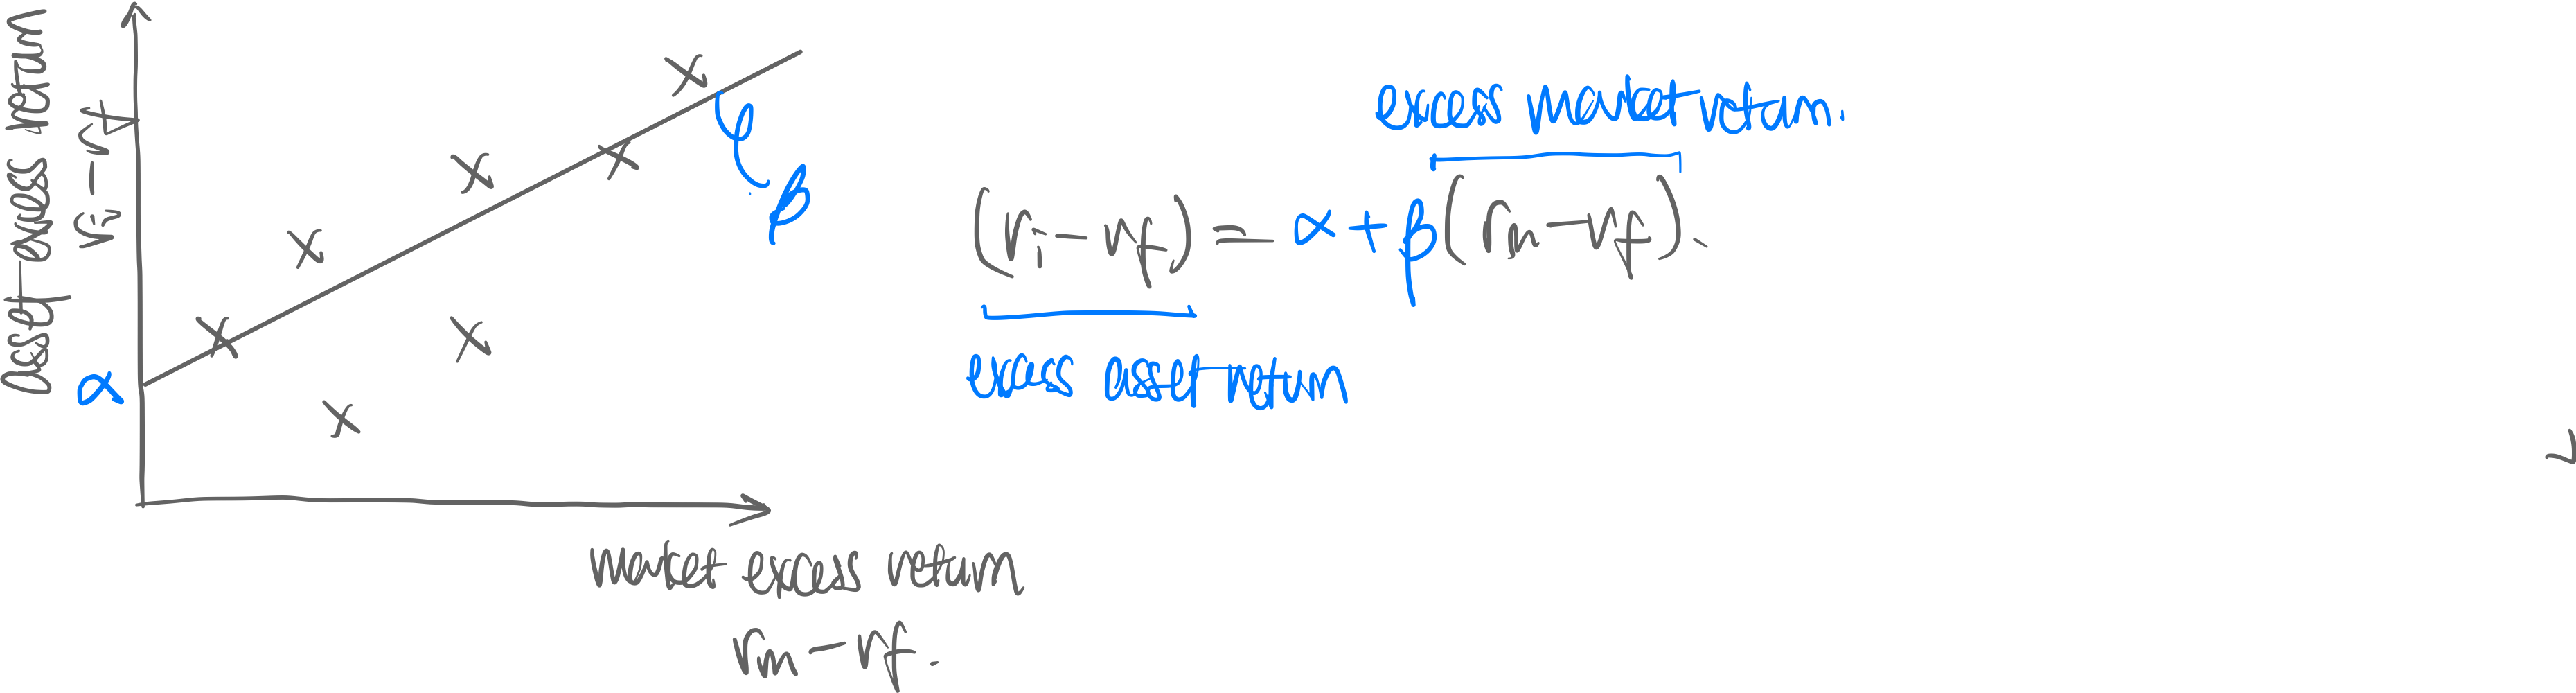 asset excess return
ri - rf
α
β
market excess return
rm - rf.
excess market return.
(ri - rf) = α + β(rm - rf).
excess asset return